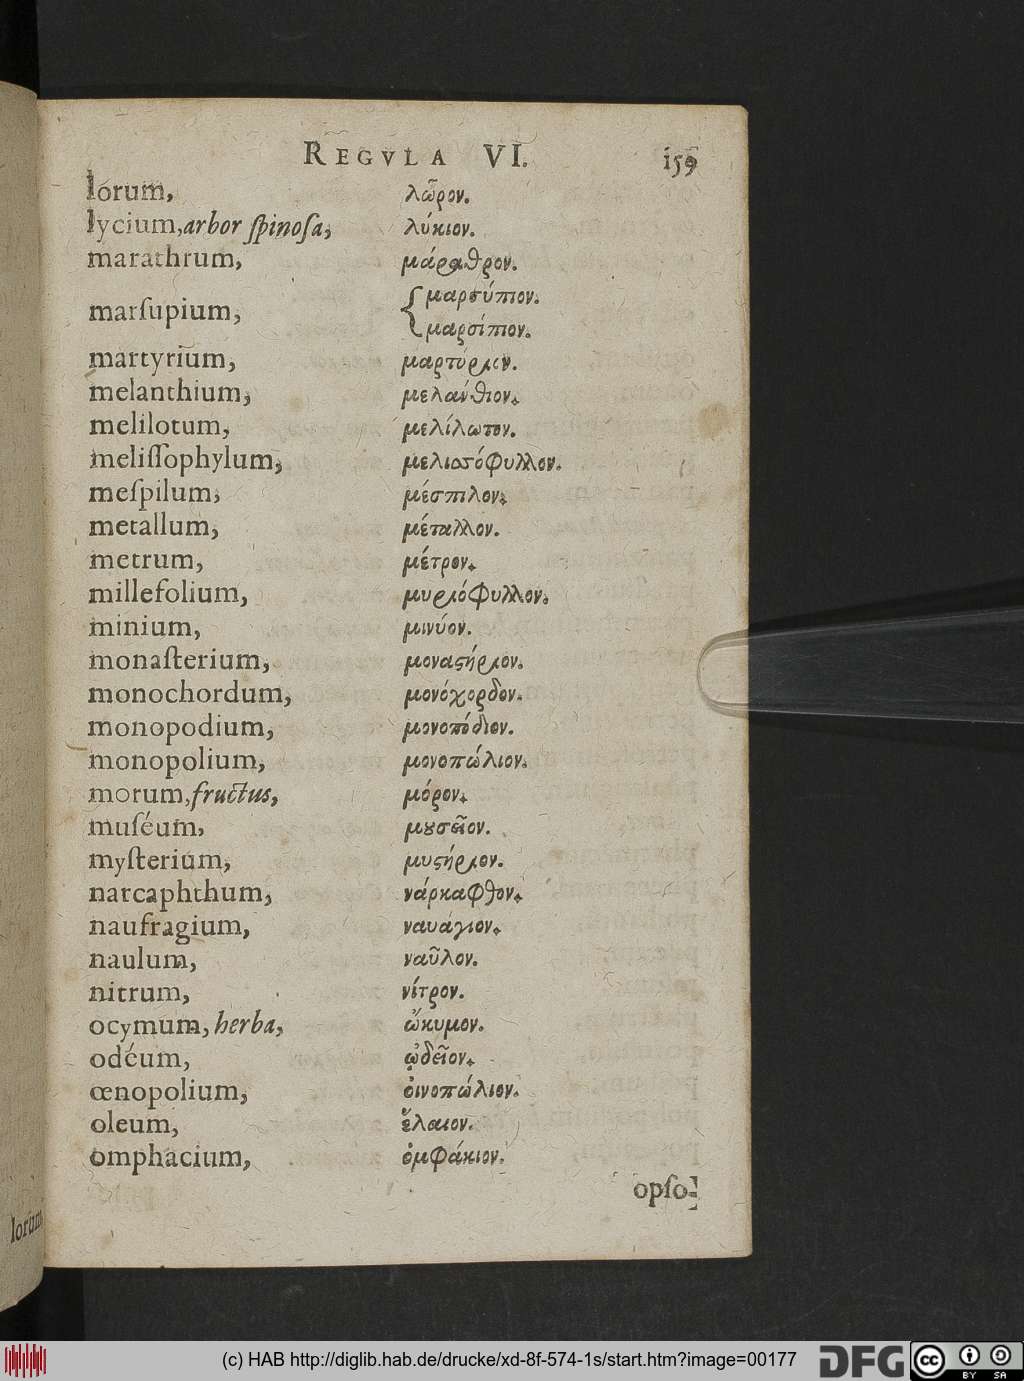 REGVLA VI. 159
lorum, λῶρον.
lycium, arbor ſpinoſa, λύκιον.
marathrum, μάραθρον.
marſupium, { μαρσύπιον.
μαρσίπιον.
martyrium, μαρτύριον.
melanthium, μελάνθιον.
melilotum, μελίλωτον.
meliſſophylum, μελισσόφυλλον.
meſpilum, μέσπιλον.
metallum, μέταλλον.
metrum, μέτρον.
millefolium, μυριόφυλλον.
minium, μινύον.
monaſterium, μοναϛήριον.
monochordum, μονόχορδον.
monopodium, μονοπόδιον.
monopolium, μονοπώλιον.
morum, fructus, μόρον.
muſéum, μȣσεῖον.
myſterium, μυϛήριον.
narcaphthum, νάρκαφθον.
naufragium, ναυάγιον.
naulum, ναῦλον.
nitrum, νίτρον.
ocymum, herba, ὤκυμον.
odéum, ᾠδεῖον.
œnopolium, ὀινοπώλιον.
oleum, ἔλαιον.
omphacium, ὀμφάκιον.
opſo-
lorum
(c) HAB http://diglib.hab.de/drucke/xd-8f-574-1s/start.htm?image=00177
DFG
cc BY SA